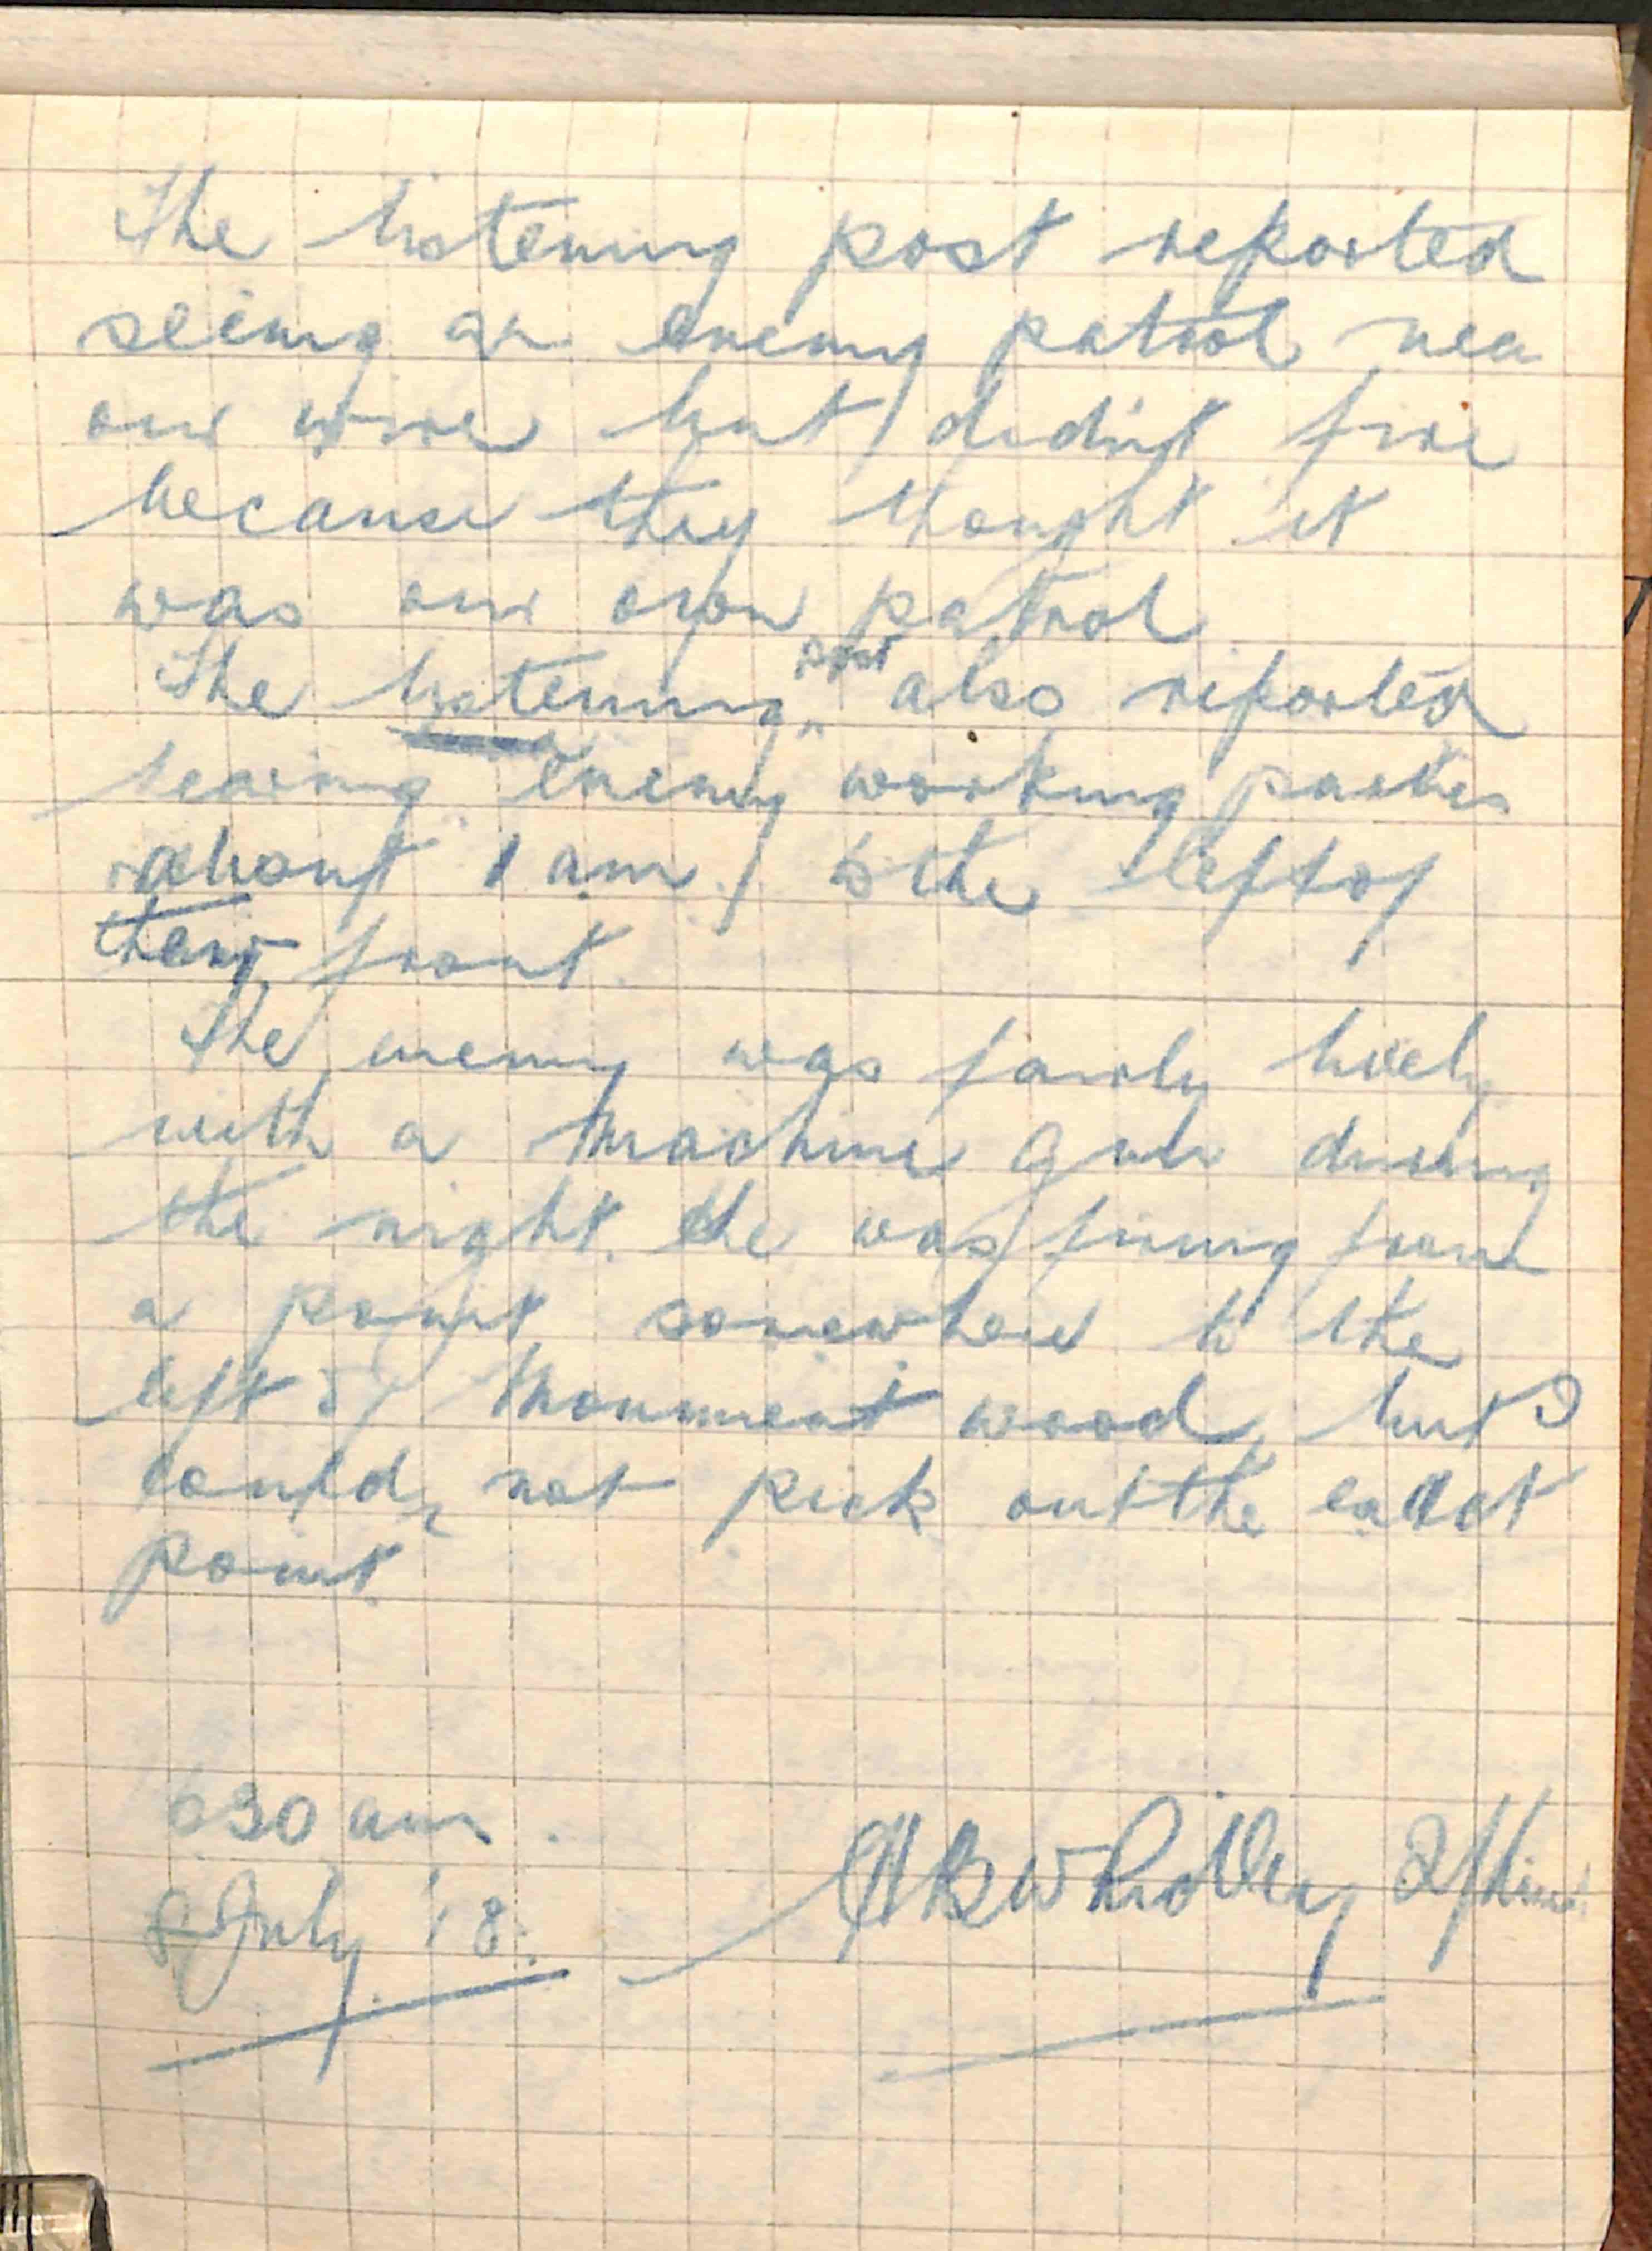 The listening post reported
seeing an enemy patrol near
our wire but didn't fire
because they thought it
was our own patrol
The listening post also reported
hearing enemy working parties
about 1 am to the left of
their front.
The enemy was fairly lively
with a machine gun during
the night. He was firing from
a point somewhere to the
left of Monument wood, but I
could not pick out the exact
point.
630 am.
8 July '18.
Ridley 2/Lieut